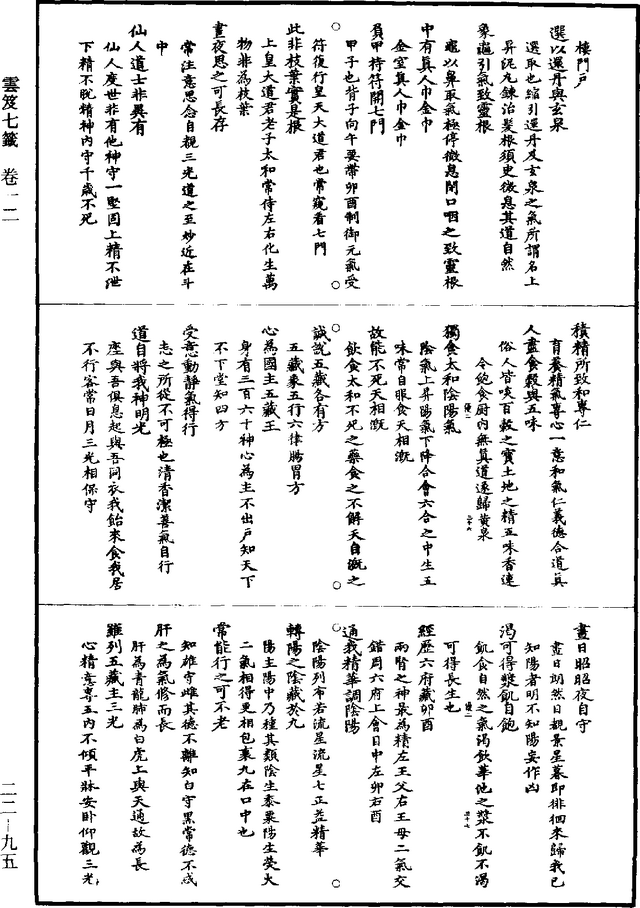 雲笈七籤 卷一二
二二-九五
樓門戶
選以還丹與玄泉
選取也縮引還丹及玄泉之氣所謂名上
昇泥丸鍊治髮根須臾微息其道自然
象龜引氣致靈根
龜以鼻取氣極停微息閉口咽之致靈根
中有真人巾金巾
金室真人巾金巾
負甲持符開七門
甲子也背子向午要帶卯酉制御元氣受
符復行皇天大道君也常窺看七門
此非枝葉實是根
上皇大道君老子太和常侍左右化生萬
物非為枝葉
晝夜思之可長存
常注意思念自親三光道之至妙近在斗
中
仙人道士非異有
仙人度世非有他神守一堅固上精不泄
下精不脫精神內守千歲不死
積精所致和專仁
育養精氣專心一意和氣仁義德合道真
人盡食穀與五味
俗人皆啖百穀之實土地之精五味香連
令飽食厨內無真道遂歸黃泉
獨食太和陰陽氣
陰氣上昇陽氣下降合會六合之中生五
味常自服食天相溉
故能不死天相溉
飲食太和不死之藥食之不解天自溉之
誠說五藏各有方
五藏象五行六律腸胃方
心為國主五藏王
身有三百六十神心為主不出戶知天下
不下堂知四方
受意動靜氣得行
志之所從不可極也清香潔善氣自行
道自將我神明光
座與吾俱息起與吾同衣我飴來食我居
不行客常日月三光相保守
晝日昭昭夜自守
晝日朗然日親景星暮即徘徊來歸我已
知陽者明不知陽妄作凶
渴可得漿飢自飽
飢食自然之氣渴飲華池之漿不飢不渴
可得長生也
經歷六府藏卯酉
兩腎之神最為精左王父右王母二氣交
錯周六府上會目中左卯右酉
通我精華調陰陽
陰陽列布若流星流星七正益精華
轉陽之陰藏於九
陽主陽中乃種其類陰生泰粟陽生熒火
二氣相得更相包裹九在口中也
常能行之可不老
知雄守雌其德不離知白守黑常德不忒
肝之為氣修而長
肝為青龍肺為白虎上與天通故為長
羅列五藏主三光
心精意專五內不傾平牀安卧仰觀三光